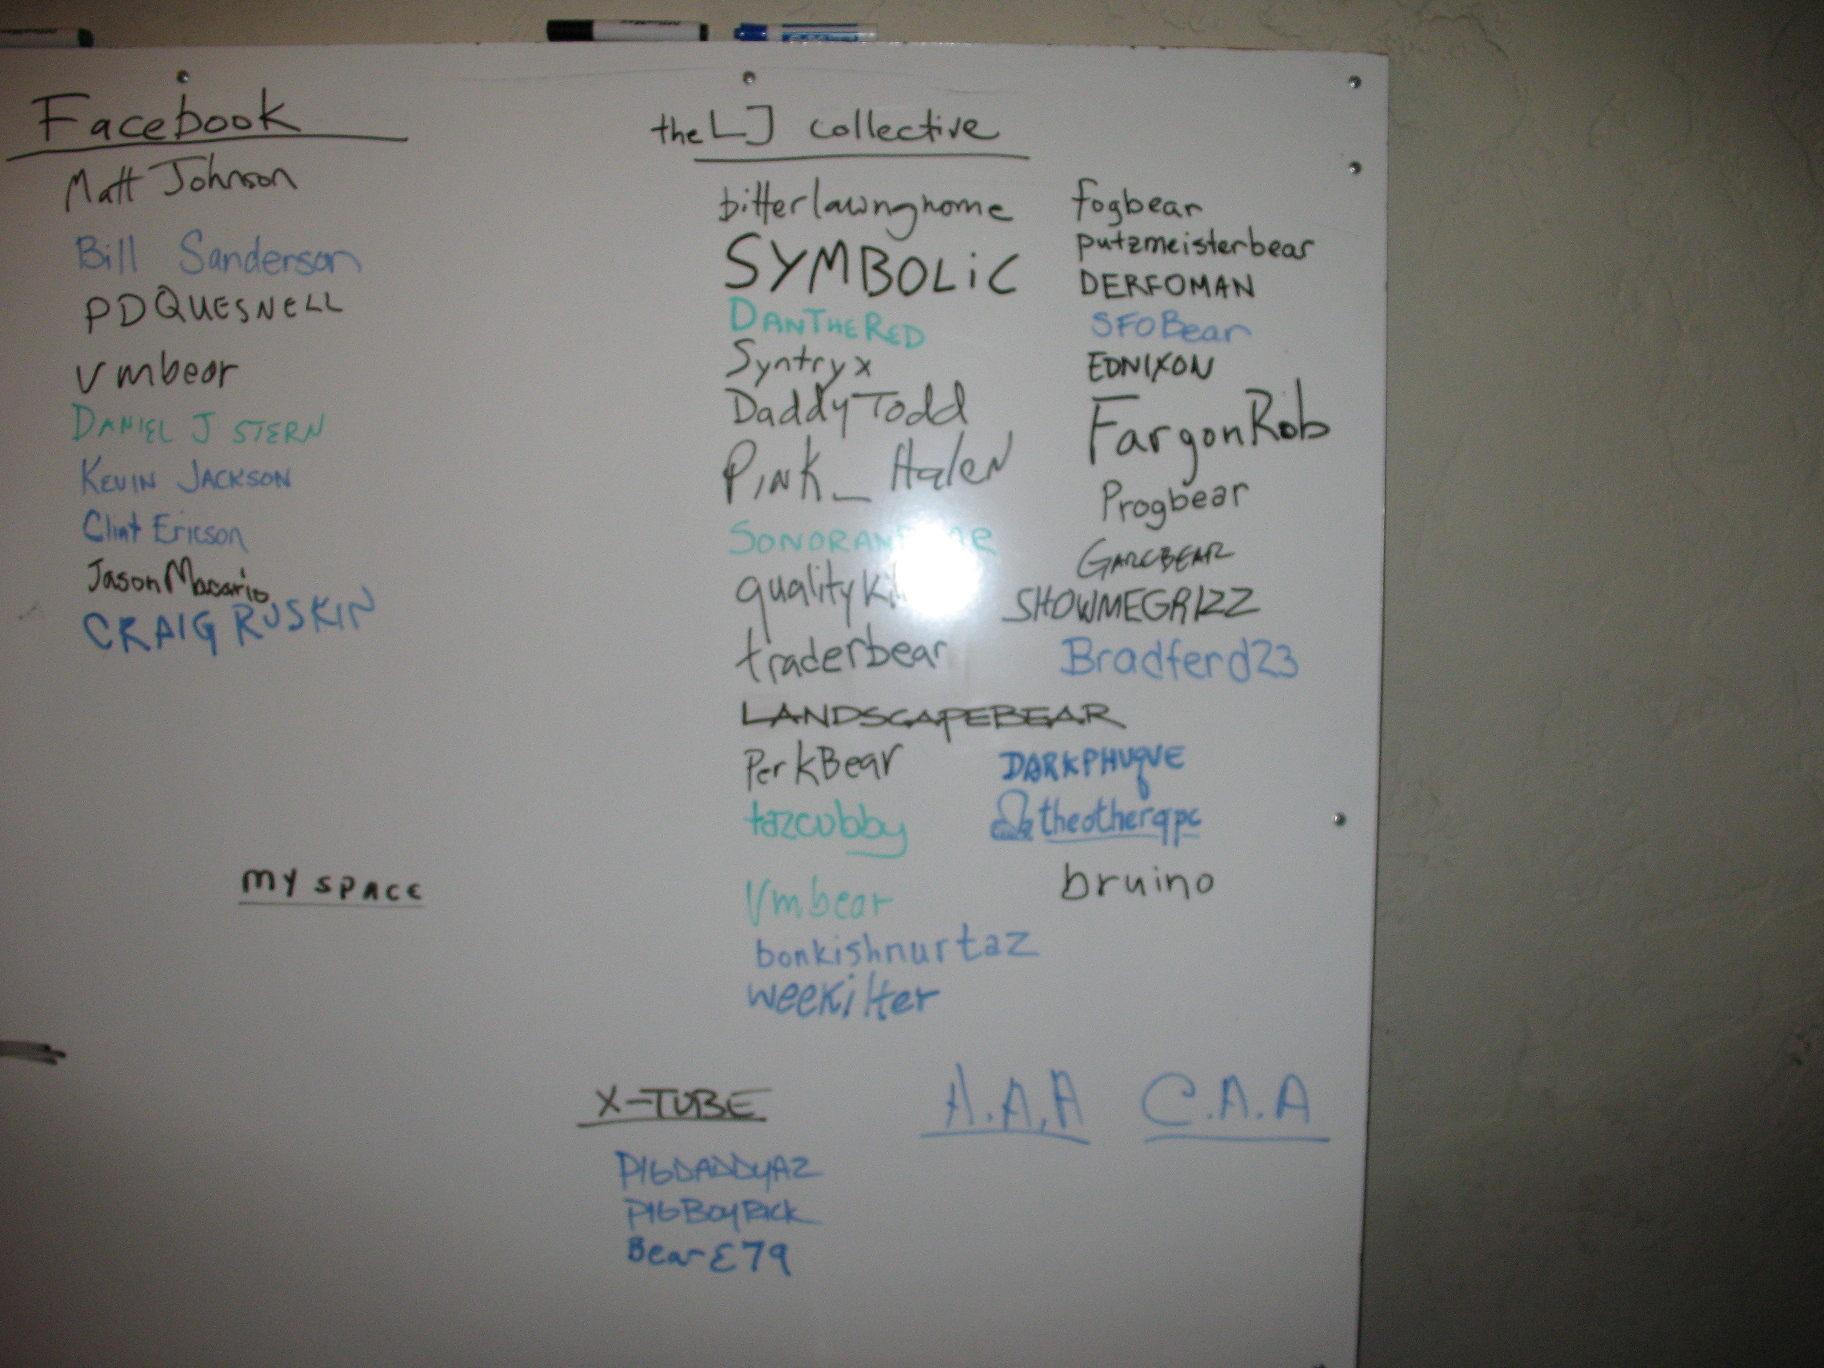 Facebook
Matt Johnson
Bill Sanderson
PDQUESNELL
vmbear
DANIEL J STERN
KEVIN JACKSON
Clint Ericson
Jason Macario
CRAIG RUSKIN
MY SPACE
the LJ collective
bitterlawngnome
SYMBOLiC
DANTHERED
Syntryx
DaddyTodd
PINK_HaleN
traderbear
LANDSCAPEBEAR
PerkBear
tazcubby
Vmbear
bonkishnurtaz
weekilter
fogbear
putzmeisterbear
DERFOMAN
SFOBear
EDNIXON
FargonRob
Progbear
GARCBEAR
SHOWMEGRIZZ
Bradferd23
DARKPHUQUE
theotherqpc
bruino
X-TUBE
PIGDADDYAZ
PIGBOYRICK
BearE79
A.A.A
C.A.A